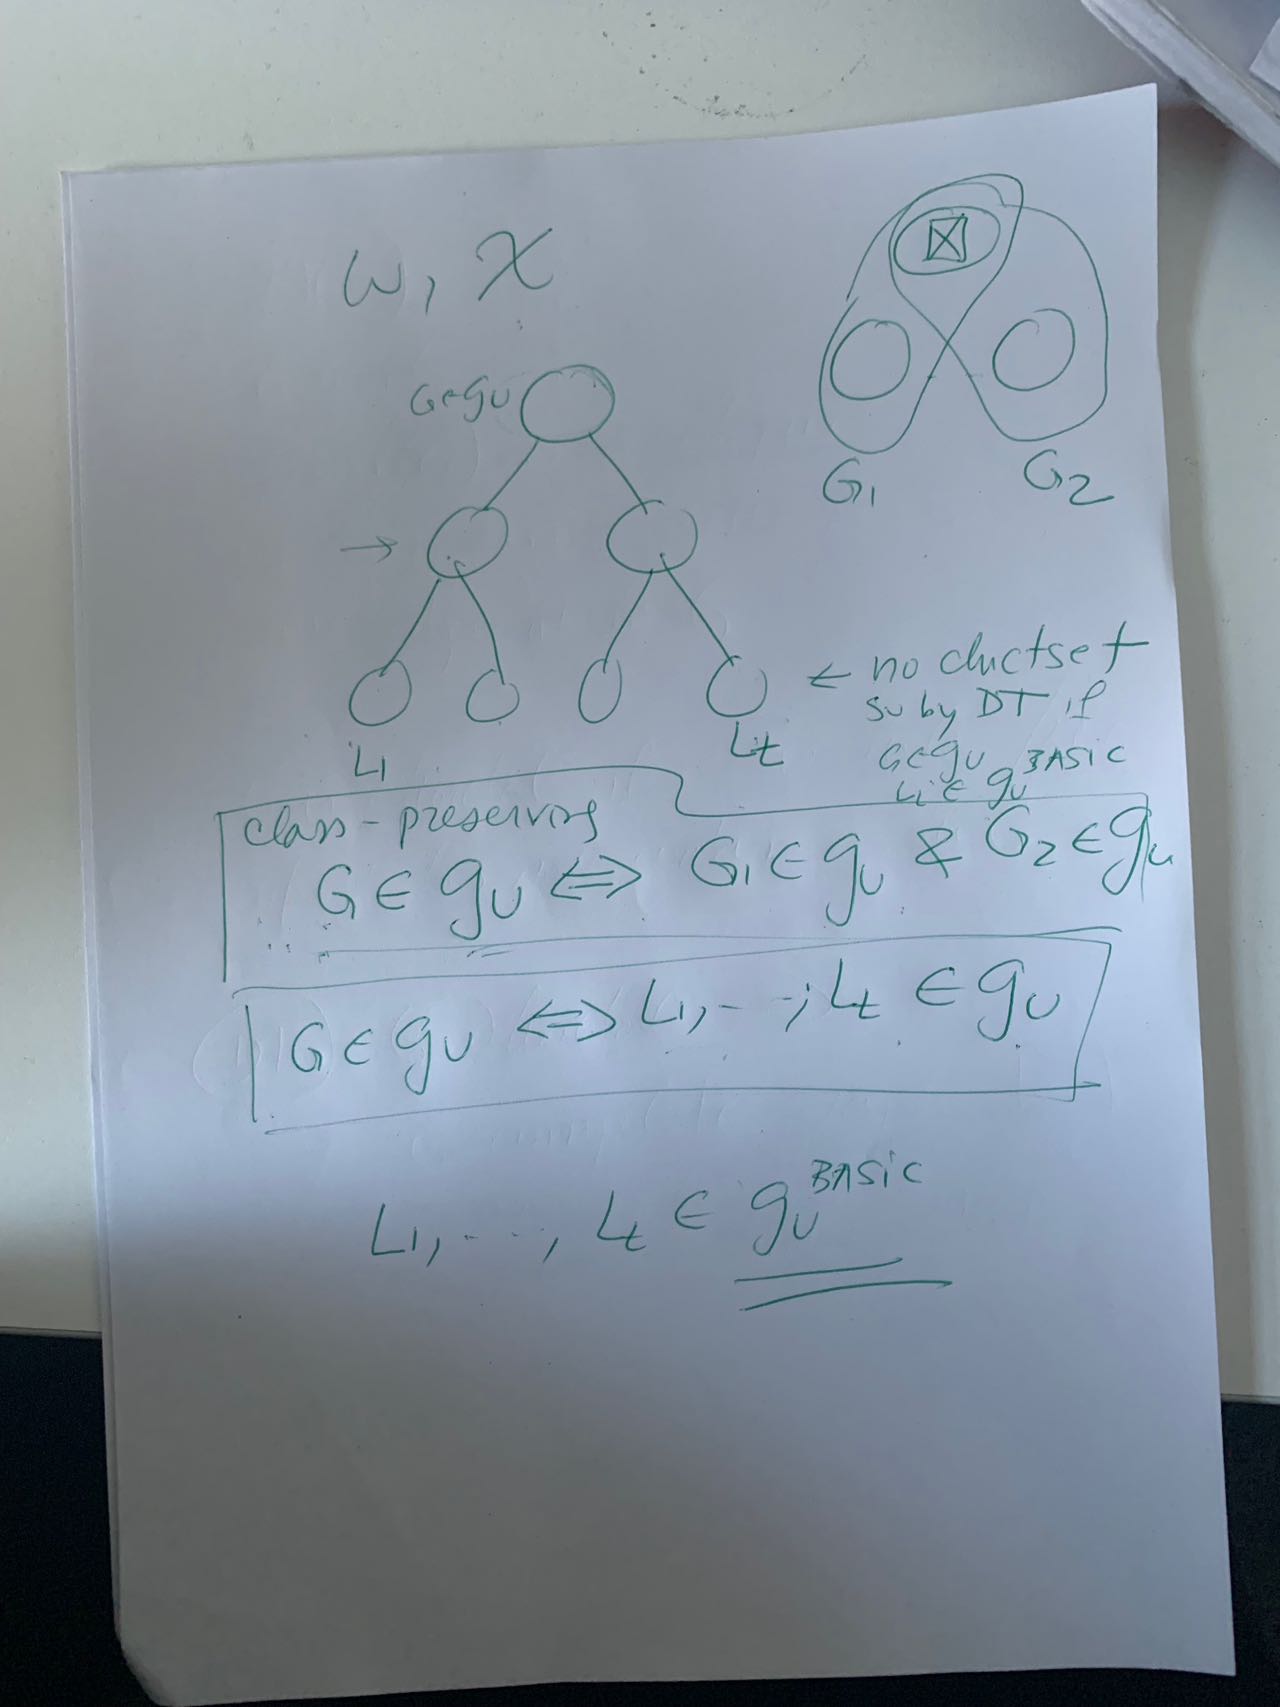 ω, χ
G∈𝒢U
G1
G2
→
L1
Lt
← no clutset
so by DT if
G∈𝒢U
Li ∈ 𝒢U BASIC
class-preserving
G ∈ 𝒢U ⇔ G1 ∈ 𝒢U & G2 ∈ 𝒢U
G ∈ 𝒢U ⇔ L1, - - , Lt ∈ 𝒢U
L1, - - - , Lt ∈ 𝒢U BASIC